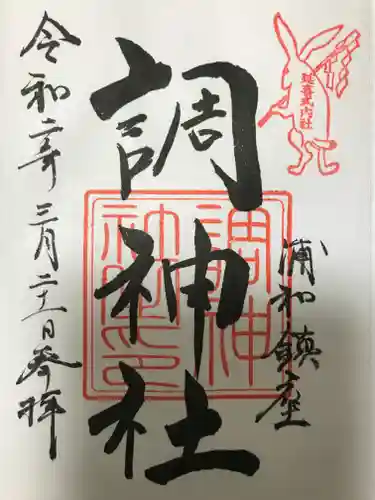 延喜式内社
浦和鎮座
調神社
調神社之印
令和二年三月二十一日参拝